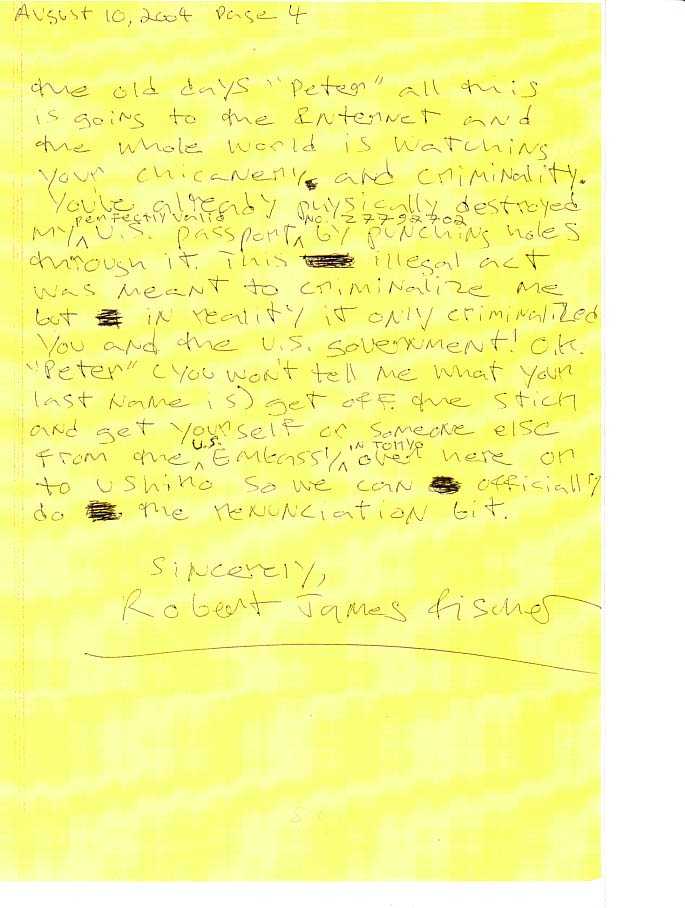 August 10, 2004 Page 4
the old days "Peter" all this
is going to the Internet and
the whole world is watching
your chicanery, and criminality.
You've already physically destroyed
my ^ perfectly valid U.S. passport, ^ No. Z7792702 by punching holes
through it. This illegal act
was meant to criminalize me
but in reality it only criminalized
you and the U.S. government! O.K.
"Peter" (you won't tell me what your
last name is) get off the stick
and get yourself or someone else
from the ^ U.S. Embassy ^ in Tokyo over here on
to Ushiko so we can officially
do the renunciation bit.
Sincerely,
Robert James Fischer